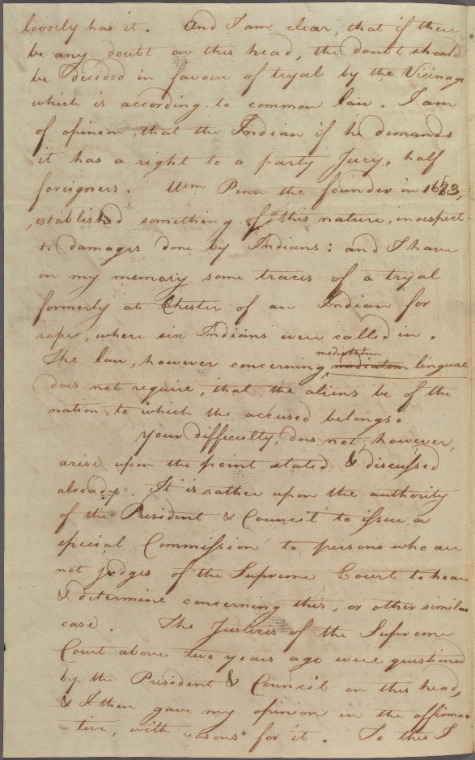 loosely has it. And I am clear, that if there
be any doubt on this head, the doubt should
be decided in favour of tryal by the Vicinage
which is according to common law. I am
of opinion, that the Indian if he demands
it has a right to a party Jury, half
foreigners. Wm Penn the founder in 1683,
established something of this nature, in respect
to damages done by Indians: and I have
on my memory some traces of a tryal
formerly at Chester of an Indian for
rape, where six Indians were called in.
The law, however concerning mediatatem linguae
does not require, that the aliens be of the
nation to which the accused belongs.
Your difficulty, does not, however,
arise upon the point stated & discussed
already. It is rather upon the authority
of the President & Council to issue a
special Commission to persons who are
not judges of the Supreme Court to hear
& determine concerning this, or other similar
case. The Justices of the Supreme
Court above two years ago were questioned
by the President & Council on this head,
& I then gave my opinion in the affirma-
-tive, with reasons for it. To this I